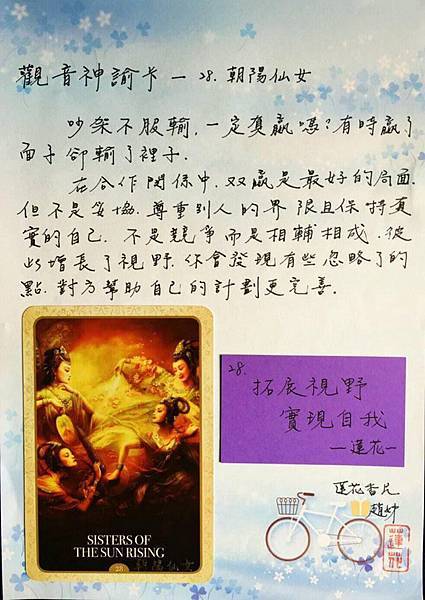 觀音神諭卡 — 28. 朝陽仙女
吵架不服輸,一定要贏嗎?有時贏了
面子卻輸了裡子.
在合作關係中,双贏是最好的局面.
但不是妥協.尊重別人的界限且保持真
實的自己.不是競爭而是相輔相成.彼
此增長了視野.你會發現有些忽略了的
點.對方幫助自己的計劃更完善.
SISTERS OF
THE SUN RISING
28
朝陽仙女
28.
拓展視野
實現自我
—蓮花—
蓮花杳片
趙妙
蓮花